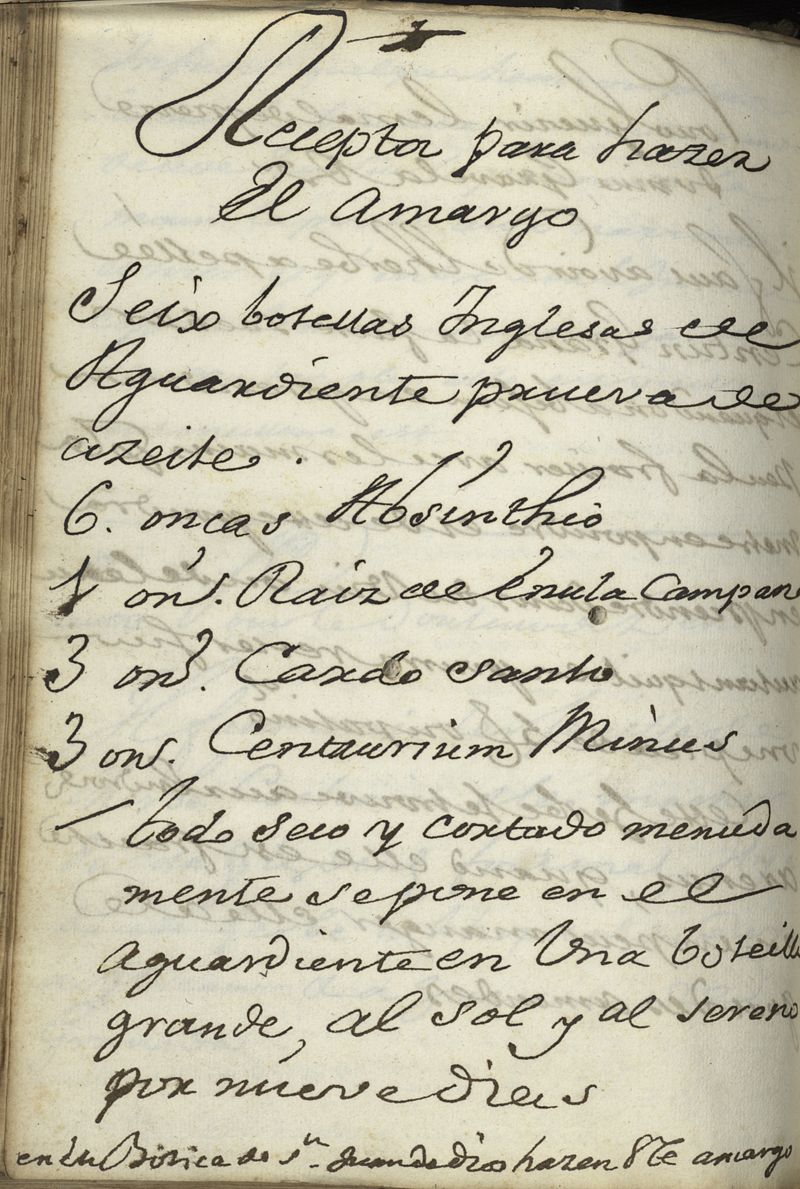 Recepta para hazer
El amargo
Seix botellas Inglesas de
Aguardiente prueva de
azeite.
6. onzas Absinthio
1 ons. Raiz de Enula Campan
3 ons. Cardo santo
3 ons. Centaurium Minus
todo seco y cortado menuda
mente se pone en el
aguardiente en Una boteilla
grande, al sol y al sereno
por nueve dias
en la Botica de Sn. Juan de dios hazen este amargo